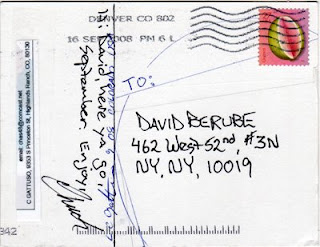 DENVER CO 802
16 SEP 2008 PM 6 L
TO:
DAVID BERUBE
462 West 52nd, #3N
NY, NY, 10019
Hi David, here ya go,
September. Enjoy!
email: chas4h@comcast.net
C GATTUSO, 9353 S Princeton St, Highlands Ranch, CO, 80130
342